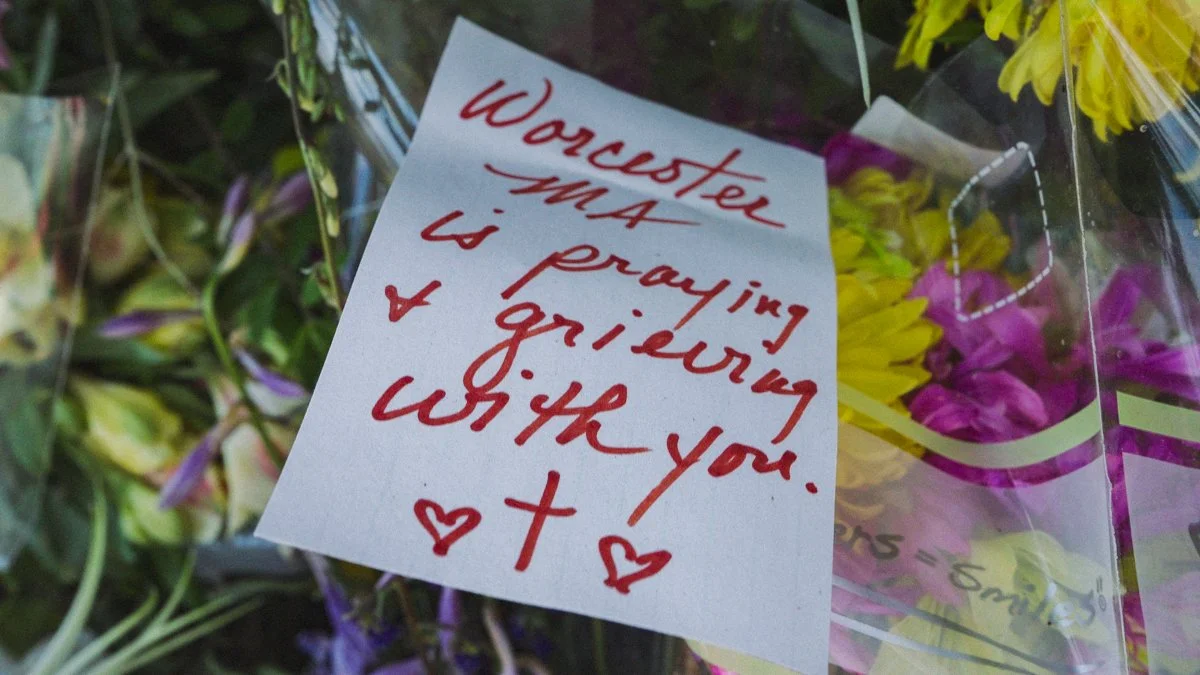 Worcester
MA
is praying
+ grieving
with you.
ers = Smiles